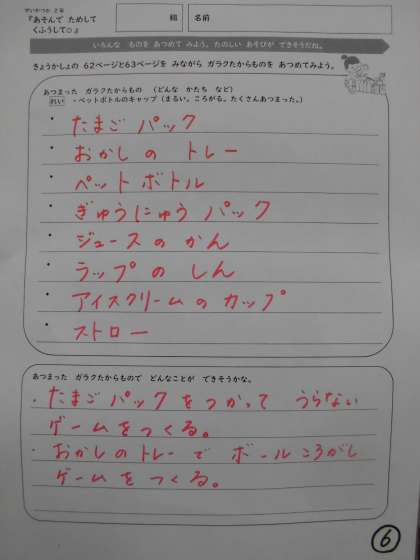 せいかつか 2年
『あそんで ためして
くふうして○』
組 名前
いろんな ものを あつめて みよう。たのしい あそびが できそうだね。
きょうかしょの 62ページと63ページを みながら ガラクタからものを あつめてみよう。
あつまった ガラクタからもの (どんな かたち など)
れい ・ペットボトルのキャップ(まるい。ころがる。たくさんあつまった。)
・ たまご パック
・ おかしの トレー
・ ペット ボトル
・ ぎゅうにゅう パック
・ ジュースの かん
・ ラップ の しん
・ アイスクリームの カップ
・ ストロー
あつまった ガラクタからもので どんなことが できそうかな。
・たまご パック を つかって うらない
ゲームを つくる。
・おかしの トレー で ボール ころがし
ゲームを つくる。
6